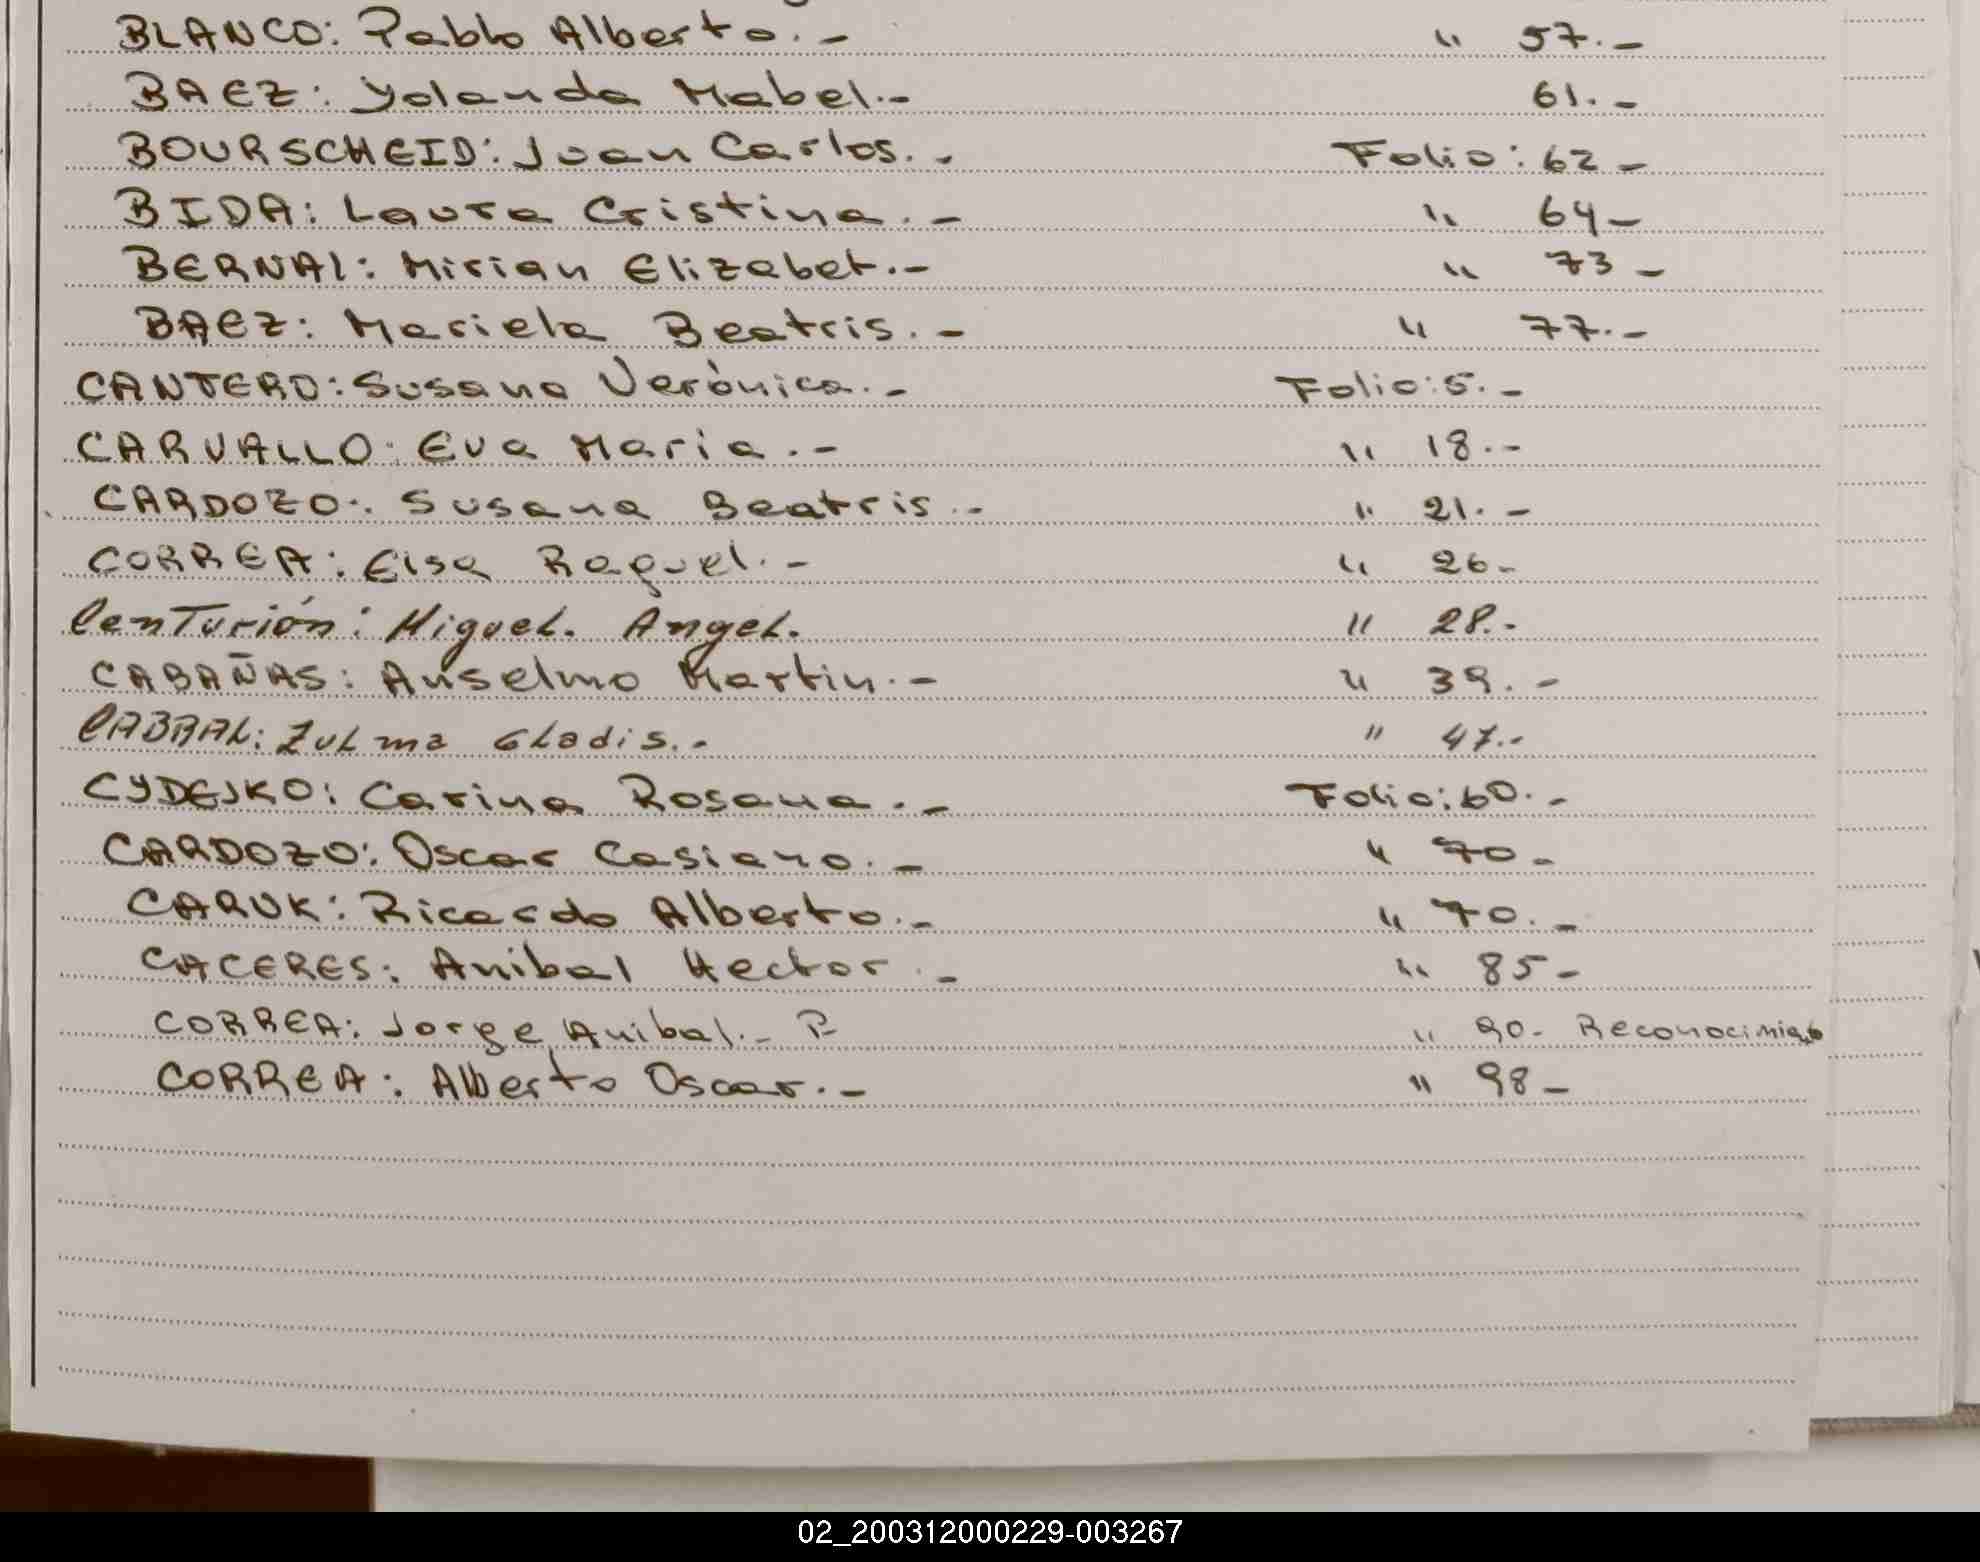 BLANCO: Pablo Alberto.- " 57.-
BAEZ: Yolanda Mabel.- 61.-
BOURSCHEID: Juan Carlos.- Folio: 62-
BIDA: Laura Cristina.- " 64-
BERNAL: Mirian Elizabet.- " 73-
BAEZ: Mariela Beatris.- " 77.-
CANTERO: Susana Verónica.- Folio: 5.-
CARVALLO: Eva Maria.- " 18.-
CARDOZO: Susana Beatris.- " 21.-
CORREA: Elsa Raquel.- " 26-
CenTurión: Miguel. Angel. " 28.-
CABAÑAS: Anselmo Martin.- " 39.-
CABRAL: Zulma Gladis.- " 47.-
CYDEJKO: Carina Rosana.- Folio: 60.-
CARDOZO: Oscar Casiano.- " 70-
CARUK: Ricardo Alberto.- " 70.-
CACERES: Anibal Hector.- " 85-
CORREA: Jorge Anibal.- " 90- Reconocimiento
CORREA: Alberto Oscar.- " 98-
02_200312000229-003267